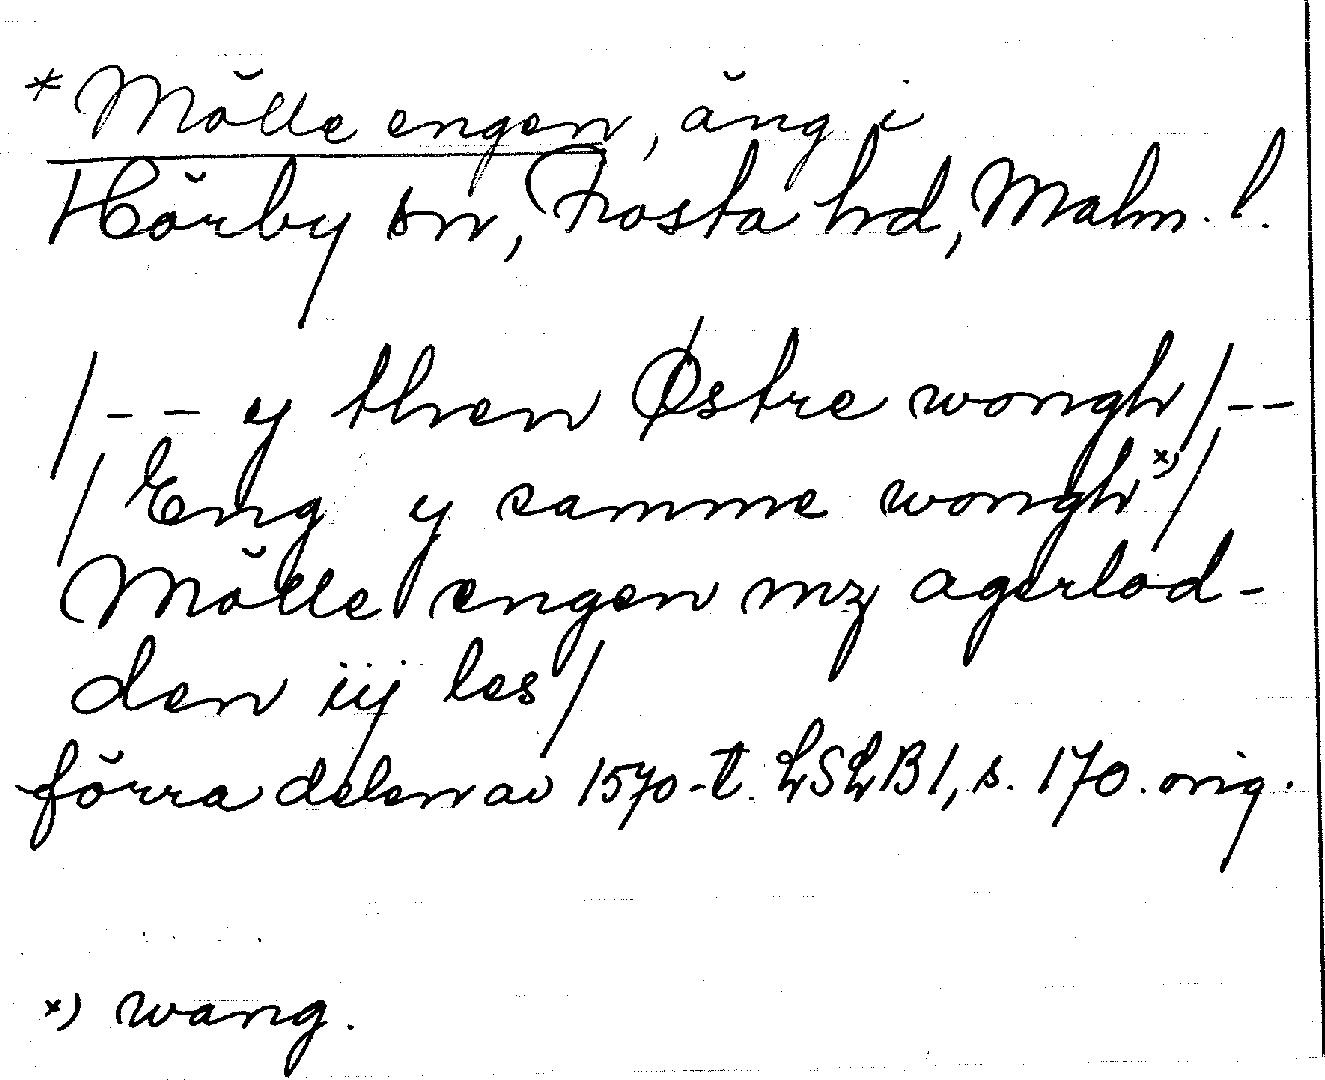 * Mölle engen, äng i
Hörby sn, Frosta hd, Malm. l.
/-- y then Østre wongh/--
/Eng y samme wongh x)/
Mölle engen mz agerlod-
den iij les/
förra delen av 1570-t. LSLB1, s. 170. orig.
x) wang.